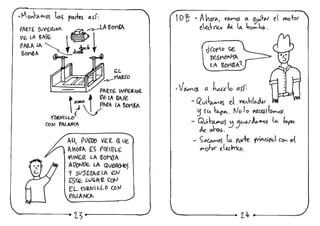 - Montamos las partes así:
PARTE SUPERIOR
DE LA BASE
PARA LA
BOMBA
LA BOMBA
EL
MARCO
PARTE INFERIOR
DE LA BASE
PARA LA BOMBA
TORNILLO
CON PALANCA
AH, PUEDO VER QUE
AHORA ES POSIBLE
MOVER LA BOMBA
ADONDE LA QUEREMOS
Y SUJETARLA EN
ESE LUGAR CON
EL TORNILLO CON
PALANCA.
23
10º - Ahora, vamos a quitar el motor
eléctrico de la bomba.
¿CÓMO SE
DESMONTA
LA BOMBA?
- Vamos a hacerlo así:
- Quitamos el ventilador
y su tapa. No lo necesitamos.
- Quitamos y guardamos la tapa
de atrás.
- Sacamos la parte principal con el
motor eléctrico.
24